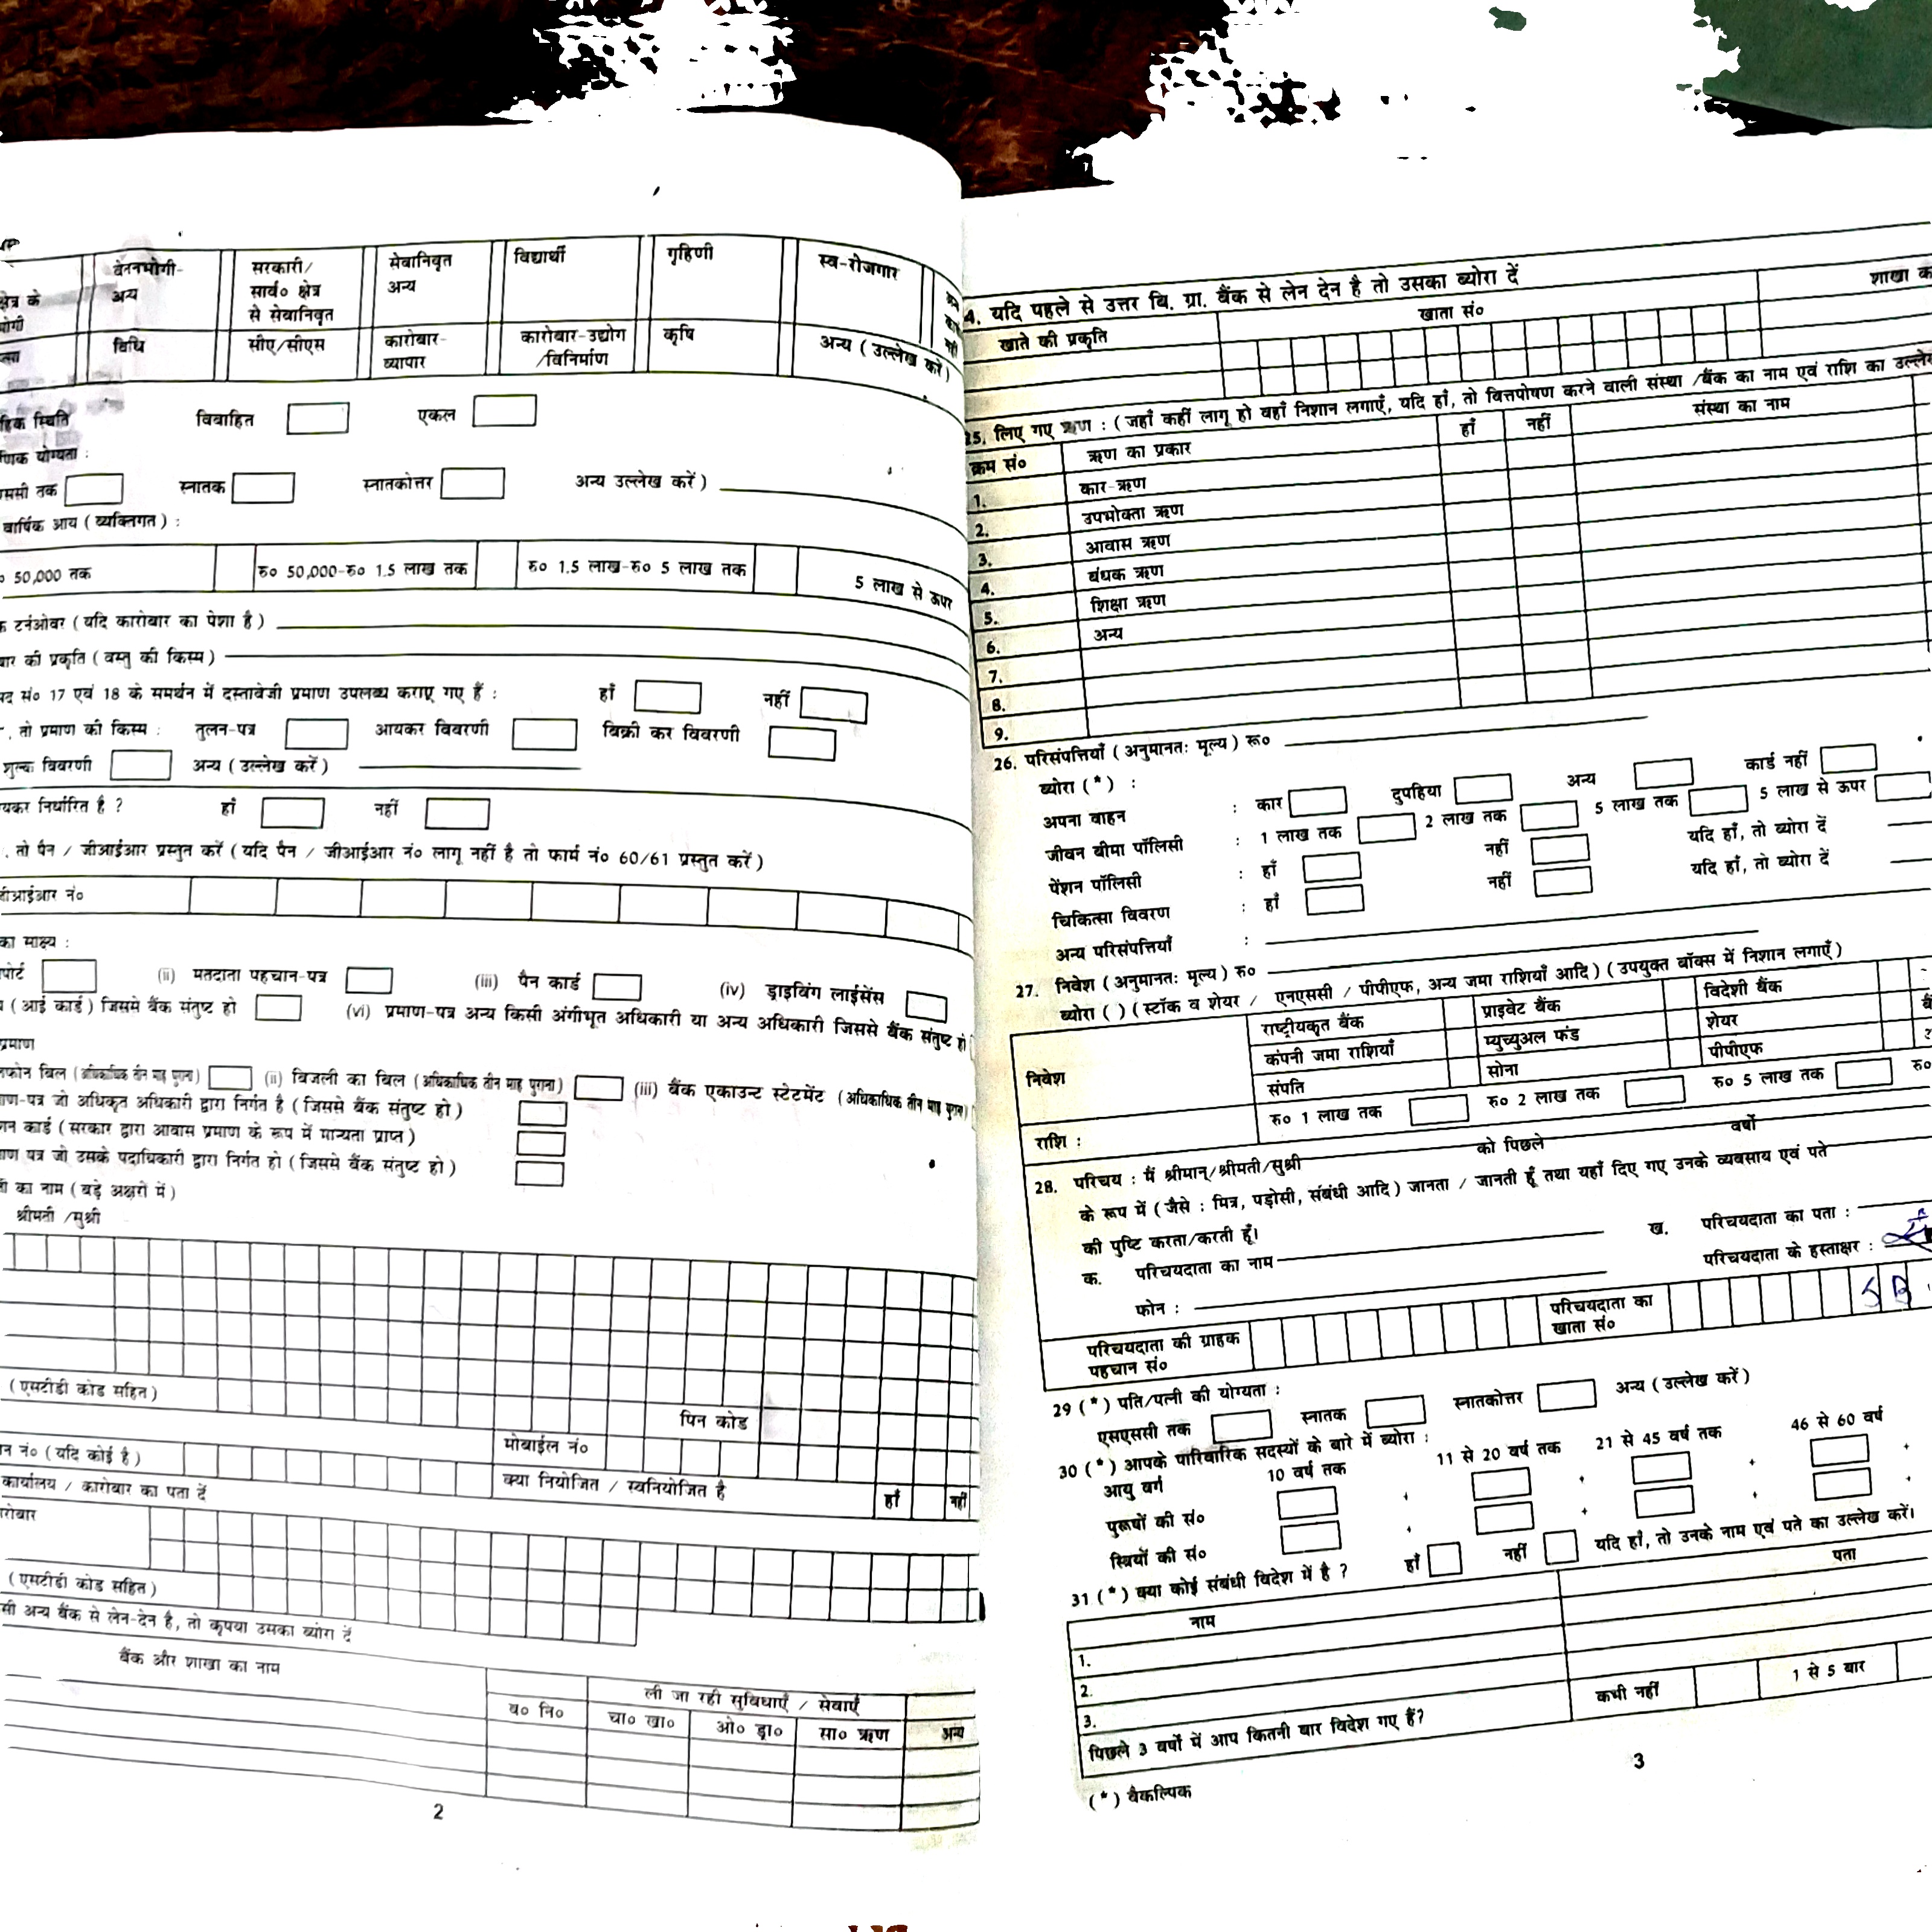 क्षेत्र के
वेतनभोगी-
अन्य
सरकारी/
सार्व० क्षेत्र
से सेवानिवृत
सेवानिवृत
अन्य
विद्यार्थी
गृहिणी
स्व-रोजगार
विधि
सीए/सीएस
कारोबार-
व्यापार
कारोबार-उद्योग
/विनिर्माण
कृषि
अन्य ( उल्लेख करें )
स्थिति विवाहित एकल
योग्यता :
तक स्नातक स्नातकोत्तर अन्य उल्लेख करें )
वार्षिक आय ( व्यक्तिगत ) :
50,000 तक रु० 50,000-रु० 1.5 लाख तक रु० 1.5 लाख-रु० 5 लाख तक 5 लाख से ऊपर
टर्नओवर ( यदि कारोबार का पेशा है )
की प्रकृति ( वस्तु की किस्म )
सं० 17 एवं 18 के समर्थन में दस्तावेजी प्रमाण उपलब्ध कराए गए हैं : हाँ नहीं
, तो प्रमाण की किस्म : तुलन-पत्र आयकर विवरणी बिक्री कर विवरणी
शुल्क विवरणी अन्य ( उल्लेख करें )
निर्धारित है ? हाँ नहीं
. तो पैन / जीआईआर प्रस्तुत करें ( यदि पैन / जीआईआर नं० लागू नहीं है तो फार्म नं० 60/61 प्रस्तुत करें )
जीआईआर नं०
का साक्ष्य :
(ii) मतदाता पहचान-पत्र (iii) पैन कार्ड (iv) ड्राइविंग लाईसेंस
( आई कार्ड ) जिससे बैंक संतुष्ट हो (vi) प्रमाण-पत्र अन्य किसी अंगीभूत अधिकारी या अन्य अधिकारी जिससे बैंक संतुष्ट हो
प्रमाण
बिल (अधिकाधिक तीन माह पुराना) (ii) बिजली का बिल (अधिकाधिक तीन माह पुराना) (iii) बैंक एकाउन्ट स्टेटमेंट (अधिकाधिक तीन माह पुराना)
जो अधिकृत अधिकारी द्वारा निर्गत है ( जिससे बैंक संतुष्ट हो )
कार्ड ( सरकार द्वारा आवास प्रमाण के रूप में मान्यता प्राप्त )
पत्र जो उसके पदाधिकारी द्वारा निर्गत हो ( जिससे बैंक संतुष्ट हो )
का नाम ( बड़े अक्षरों में )
श्रीमती /सुश्री
( एसटीडी कोड सहित ) पिन कोड
नं० ( यदि कोई है ) मोबाईल नं०
कार्यालय / कारोबार का पता दें क्या नियोजित / स्वनियोजित है हाँ नहीं
( एसटीडी कोड सहित )
अन्य बैंक से लेन-देन है, तो कृपया उसका ब्योरा दें
बैंक और शाखा का नाम ली जा रही सुविधाएँ / सेवाएँ
ब० नि० चा० खा० ओ० ड्रा० सा० ऋण अन्य
2
4. यदि पहले से उत्तर बि. ग्रा. बैंक से लेन देन है तो उसका ब्योरा दें
खाते की प्रकृति खाता सं० शाखा
25. लिए गए ऋण : ( जहाँ कहीं लागू हो वहाँ निशान लगाएँ, यदि हाँ, तो वित्तपोषण करने वाली संस्था /बैंक का नाम एवं राशि का
क्रम सं० ऋण का प्रकार हाँ नहीं संस्था का नाम
1. कार-ऋण
2. उपभोक्ता ऋण
3. आवास ऋण
4. बंधक ऋण
5. शिक्षा ऋण
6. अन्य
7.
8.
9.
26. परिसंपत्तियाँ ( अनुमानतः मूल्य ) रू०
ब्योरा ( * ) :
अपना वाहन : कार दुपहिया अन्य कार्ड नहीं
जीवन बीमा पॉलिसी : 1 लाख तक 2 लाख तक 5 लाख तक 5 लाख से ऊपर
पेंशन पॉलिसी : हाँ नहीं यदि हाँ, तो ब्योरा दें
चिकित्सा विवरण : हाँ नहीं यदि हाँ, तो ब्योरा दें
अन्य परिसंपत्तियाँ :
27. निवेश ( अनुमानतः मूल्य ) रु०
ब्योरा ( ) ( स्टॉक व शेयर / एनएससी / पीपीएफ, अन्य जमा राशियाँ आदि ) ( उपयुक्त बॉक्स में निशान लगाएँ )
निवेश राष्ट्रीयकृत बैंक प्राइवेट बैंक विदेशी बैंक
कंपनी जमा राशियाँ म्युच्युअल फंड शेयर
संपति सोना पीपीएफ
राशि : रु० 1 लाख तक रु० 2 लाख तक रु० 5 लाख तक रु०
28. परिचय : मैं श्रीमान्/श्रीमती/सुश्री को पिछले वर्षों
के रूप में ( जैसे : मित्र, पड़ोसी, संबंधी आदि ) जानता / जानती हूँ तथा यहाँ दिए गए उनके व्यवसाय एवं पते
की पुष्टि करता/करती हूँ।
क. परिचयदाता का नाम ख. परिचयदाता का पता :
फोन : परिचयदाता के हस्ताक्षर :
परिचयदाता की ग्राहक
पहचान सं०
परिचयदाता का
खाता सं०
S B
29 ( * ) पति/पत्नी की योग्यता :
एसएससी तक स्नातक स्नातकोत्तर अन्य ( उल्लेख करें )
30 ( * ) आपके पारिवारिक सदस्यों के बारे में ब्योरा :
आयु वर्ग 10 वर्ष तक 11 से 20 वर्ष तक 21 से 45 वर्ष तक 46 से 60 वर्ष
पुरूषों की सं०
स्त्रियों की सं०
31 ( * ) क्या कोई संबंधी विदेश में है ? हाँ नहीं यदि हाँ, तो उनके नाम एवं पते का उल्लेख करें।
नाम पता
1.
2.
3.
पिछले 3 वर्षों में आप कितनी बार विदेश गए हैं? कभी नहीं 1 से 5 बार
( * ) वैकल्पिक
3